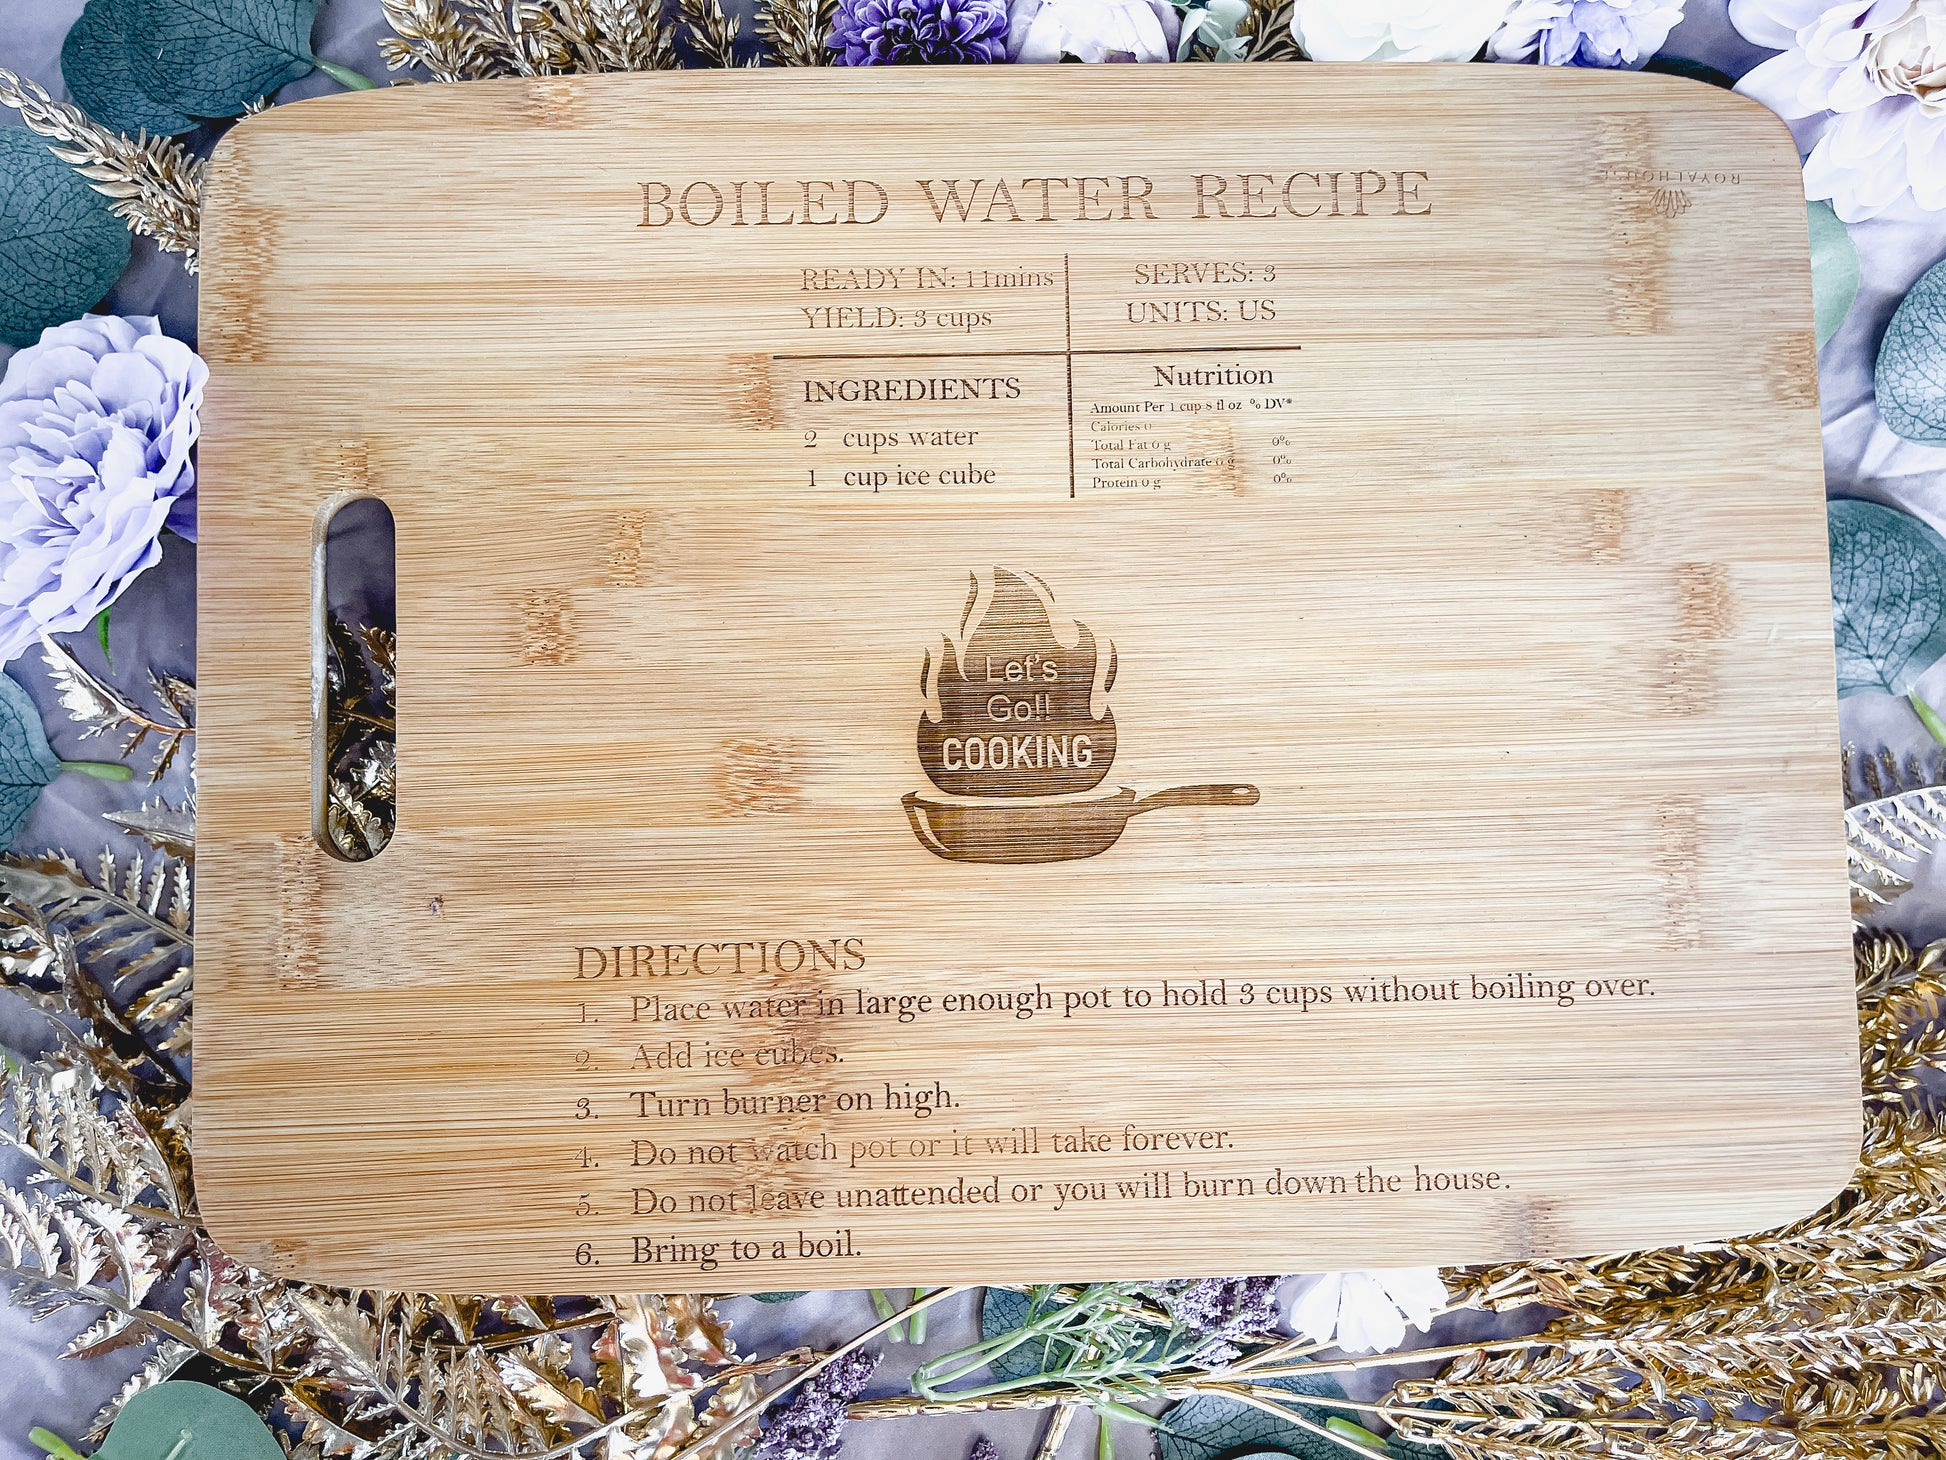 BOILED WATER RECIPE
ROYALHOUSE
READY IN: 11mins
YIELD: 3 cups
SERVES: 3
UNITS: US
INGREDIENTS
2 cups water
1 cup ice cube
Nutrition
Amount Per 1 cup 8 fl oz % DV*
Calories 0
Total Fat 0 g 0%
Total Carbohydrate 0 g 0%
Protein 0 g 0%
Let's
Go!!
COOKING
DIRECTIONS
1. Place water in large enough pot to hold 3 cups without boiling over.
2. Add ice cubes.
3. Turn burner on high.
4. Do not watch pot or it will take forever.
5. Do not leave unattended or you will burn down the house.
6. Bring to a boil.